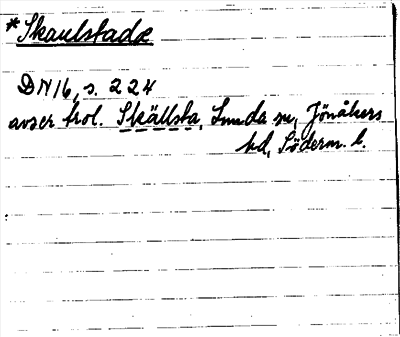 *Skaulstade
DN 16, s. 224
avser trol. Skällsta, Lunda sn, Jönåkers
hd, Söderm. l.